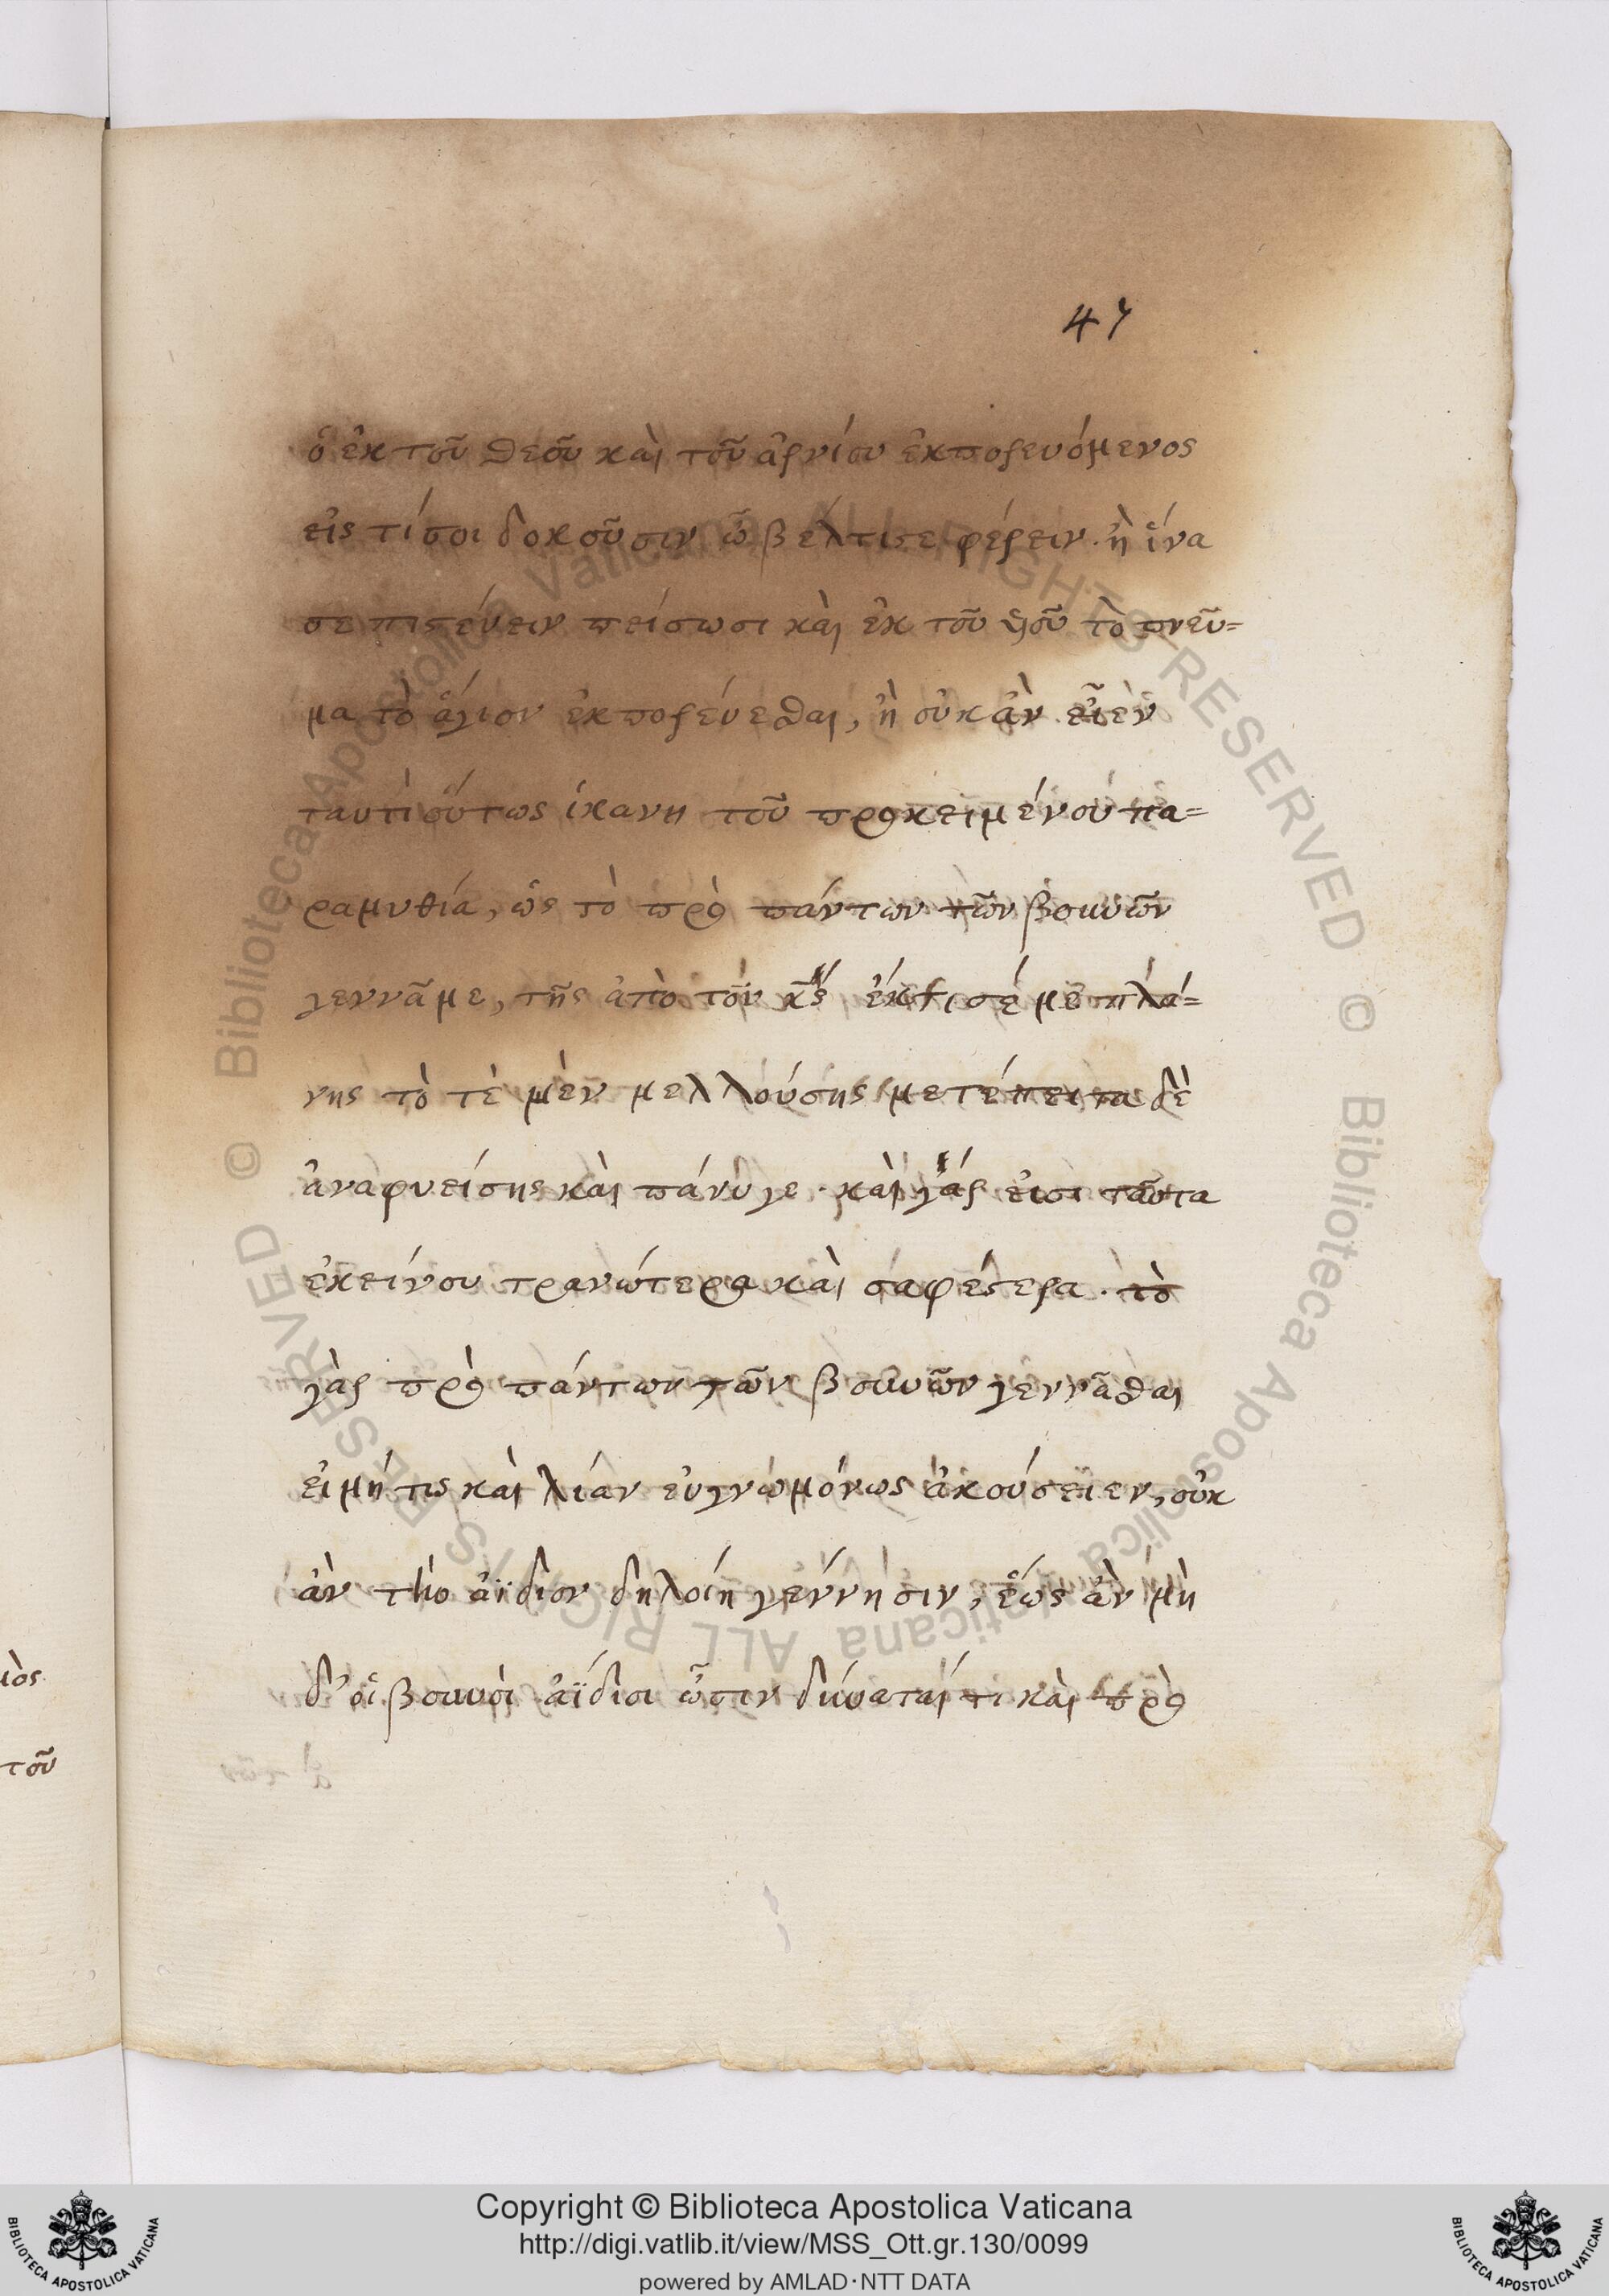 47
ὁ ἐκ τοῦ θεοῦ καὶ τοῦ ἀρνίου ἐκπορευόμενος
εἰς τί σοι δοκοῦσιν ὦ βέλτιστε φέρειν. ἢ ἵνα
σε πιστεύειν πείσωσι καὶ ἐκ τοῦ υἱοῦ τὸ πνεῦ=
μα τὸ ἅγιον ἐκπορεύεσθαι, ἢ οὐκ ἂν εἶεν
ταυτὶ οὕτως ἱκανὴ τοῦ προκειμένου πα=
ραμυθία, ὡς τὸ πρὸ πάντων τῶν βουνῶν
γεννᾶ με, τῆς ἀπὸ τοῦ κς ἔκτισέ με πλά=
νης τὸ τὲ μὲν μελλούσης μετέπειτα δὲ
ἀναφυείσης καὶ πάνυ γε. καὶ γάρ εἰσι ταῦτα
ἐκείνου τρανώτερα καὶ σαφέστερα. τὸ
γὰρ πρὸ πάντων τῶν βουνῶν γεννᾶσθαι
εἰ μή πω καὶ λίαν εὐγνωμόνως ἀκούσειεν, οὐκ
ἂν τὴν ἀΐδιον δηλοίη γέννησιν, ἕως ἂν μὴ
δ' οἱ βουνοὶ ἀΐδιοι ὦσιν δύναταί τι καὶ πρὸ
ιὸς
τοῦ
© Biblioteca Apostolica Vaticana ALL RIGHTS RESERVED
© Biblioteca Apostolica Vaticana ALL RIGHTS RESERVED
BIBLIOTECA APOSTOLICA VATICANA
Copyright © Biblioteca Apostolica Vaticana
http://digi.vatlib.it/view/MSS_Ott.gr.130/0099
powered by AMLAD·NTT DATA
BIBLIOTECA APOSTOLICA VATICANA